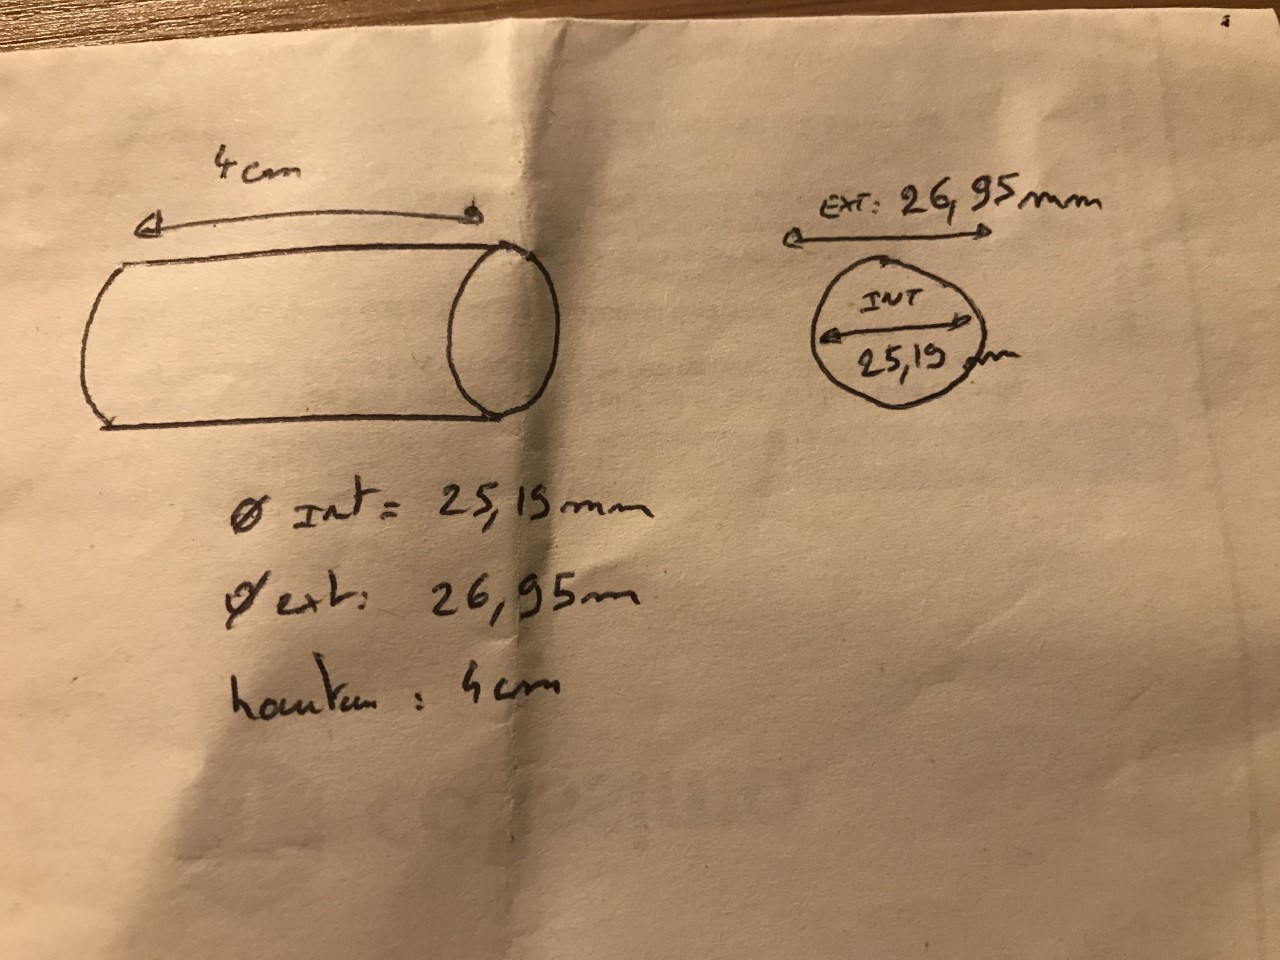 4cm
EXT: 26,95mm
INT
25,19 mm
Ø Int = 25,19mm
Ø ext: 26,95mm
hauteur : 4cm